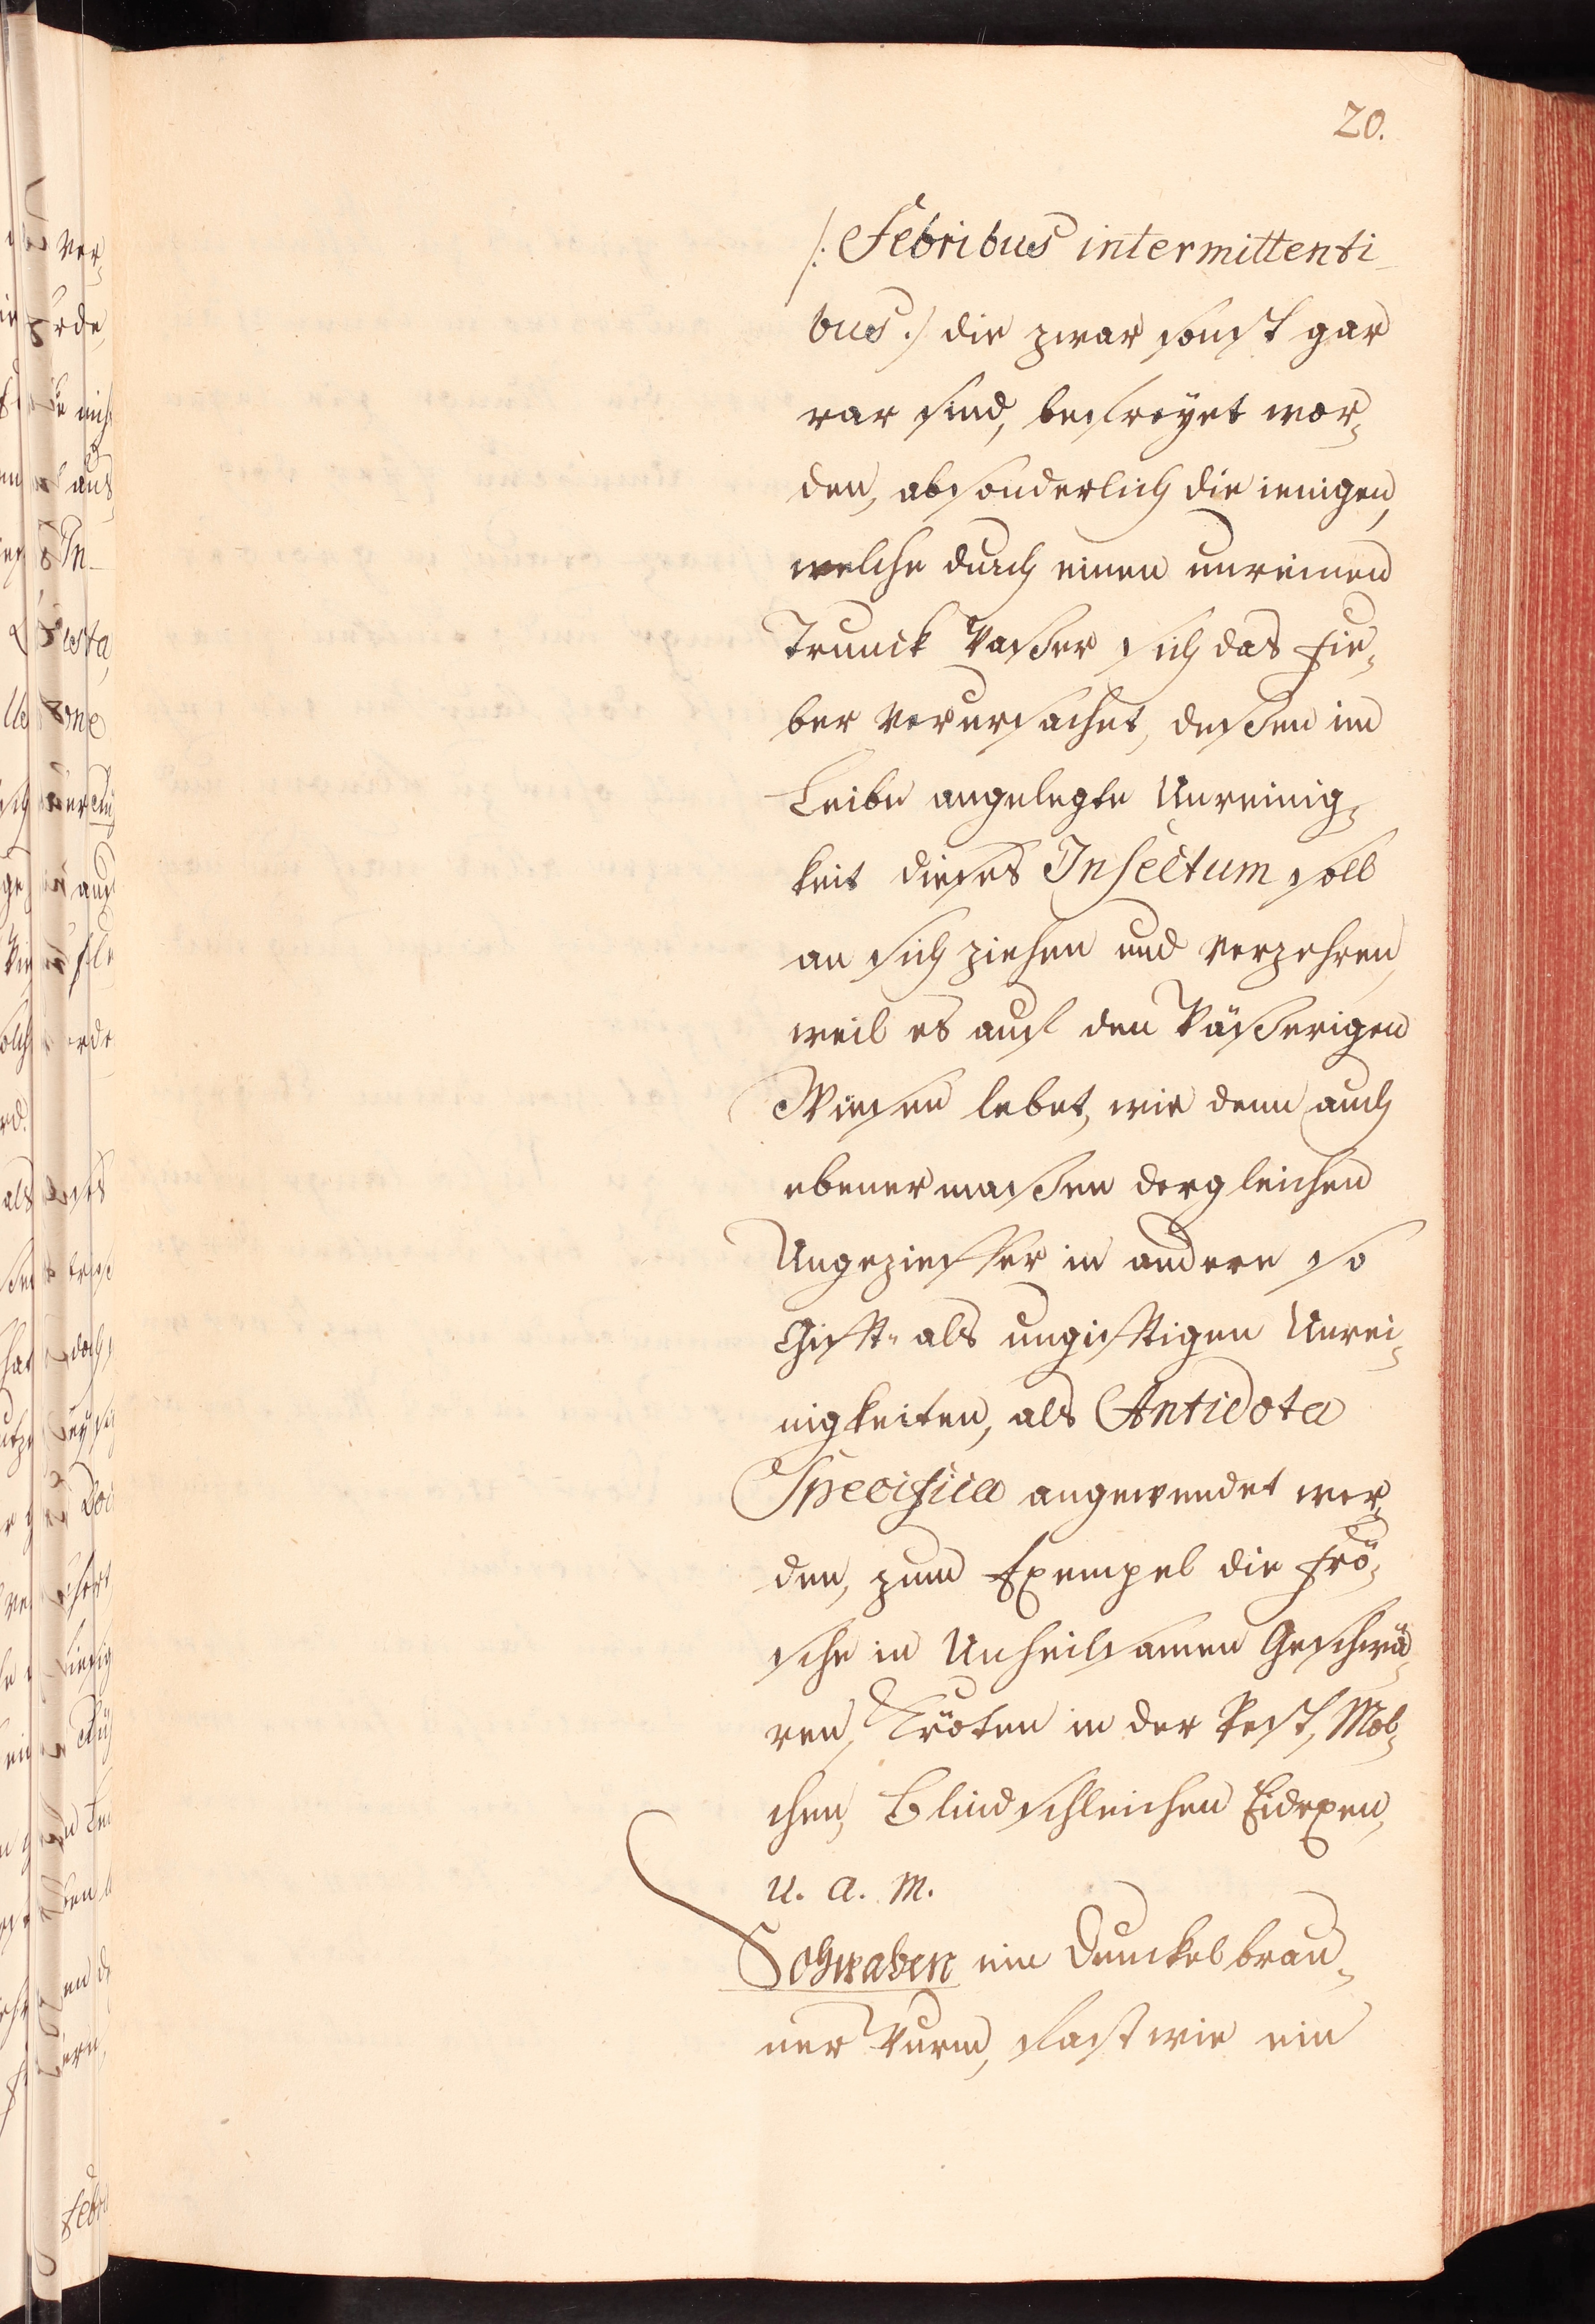 20.
/: Febribus intermittenti-
bus :/ die zwar sonst gar
rar sind, befreyet wor-
den, absonderlich die ienigen,
welche durch einen unreinen
Trunck Waßer sich das Fie-
ber verursachet, deßen im
Leibe angelegte Unreinig-
keit dieses Insectum soll
an sich ziehen und verzehren,
weil es auf den Wäßerigen
Wiesen lebet, wie denn auch
ebener maßen dergleichen
Ungezieffer in andere so
Gifft- als ungifftigen Unrei-
nigkeiten, als Antidota
Specifica angewendet wer-
den, zum Exempel die Frö-
sche in Unheilsamen Geschwä-
ren, Kröten in der Pest, Mol-
chen, Blindschleichen Eidexen,
u. a. m.
Schwaben ein Dunckelbrau-
ner Wurm, fast wie ein